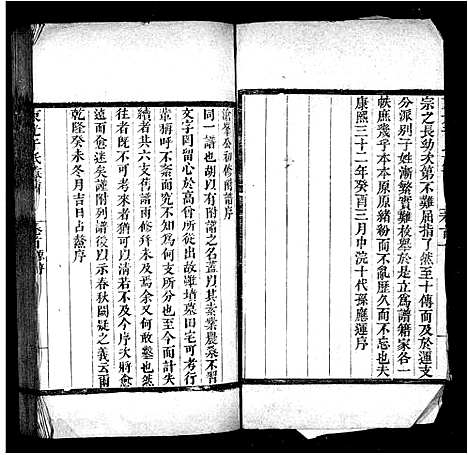 宗之長幼次第不難屈指了然至十傳而及於運支
分派別子姓漸繁實難枚舉於是立為譜籍家各一
帙庶幾乎本本原原緒粉而不亂歷久而不忘也夫
康熙三十二年癸酉三月中浣十代孫應運序
公初修附譜序
同一譜也胡以有附譜之名蓋以其素業農桑不習
文字罔留心於高曾所從出故雖墳墓田宅可考行
輩猶呼不紊而究不知為何支所分也至今而計失
續者共六支舊譜雨修幷未及焉余又何敢鑿也然
往者既不可追來者猶可以清若不及今序次將愈
遠而愈迷矣謹附列譜後以示春秋闕疑之義云爾
乾隆癸未冬月吉日占鰲序